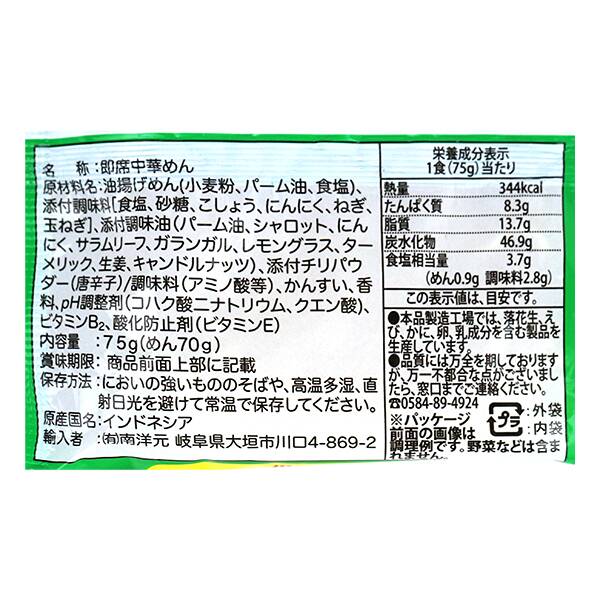 名　称:即席中華めん
原材料名:油揚げめん(小麦粉、パーム油、食塩)、
添付調味料[食塩、砂糖、こしょう、にんにく、ねぎ、
玉ねぎ]、添付調味油(パーム油、シャロット、にん
にく、サラムリーフ、ガランガル、レモングラス、ター
メリック、生姜、キャンドルナッツ)、添付チリパウ
ダー(唐辛子)/調味料(アミノ酸等)、かんすい、香
料、pH調整剤(コハク酸二ナトリウム、クエン酸)、
ビタミンB₂、酸化防止剤(ビタミンE)
内容量:75g(めん70g)
賞味期限:商品前面上部に記載
保存方法:においの強いもののそばや、高温多湿、直
射日光を避けて常温で保存してください。
原産国名:インドネシア
輸入者:㈲南洋元 岐阜県大垣市川口4-869-2
栄養成分表示
1食(75g)当たり
熱量 344kcal
たんぱく質 8.3g
脂質 13.7g
炭水化物 46.9g
食塩相当量 3.7g
(めん0.9g 調味料2.8g)
この表示値は、目安です。
●本品製造工場では、落花生、え
び、かに、卵、乳成分を含む製品を
生産しています。
●品質には万全を期しております
が、万一不都合な点がございまし
たら、窓口までご連絡ください。
☎0584-89-4924
※パッケージ
前面の画像は
調理例です。野菜などは含ま
れません。
プラ
:外袋
:内袋